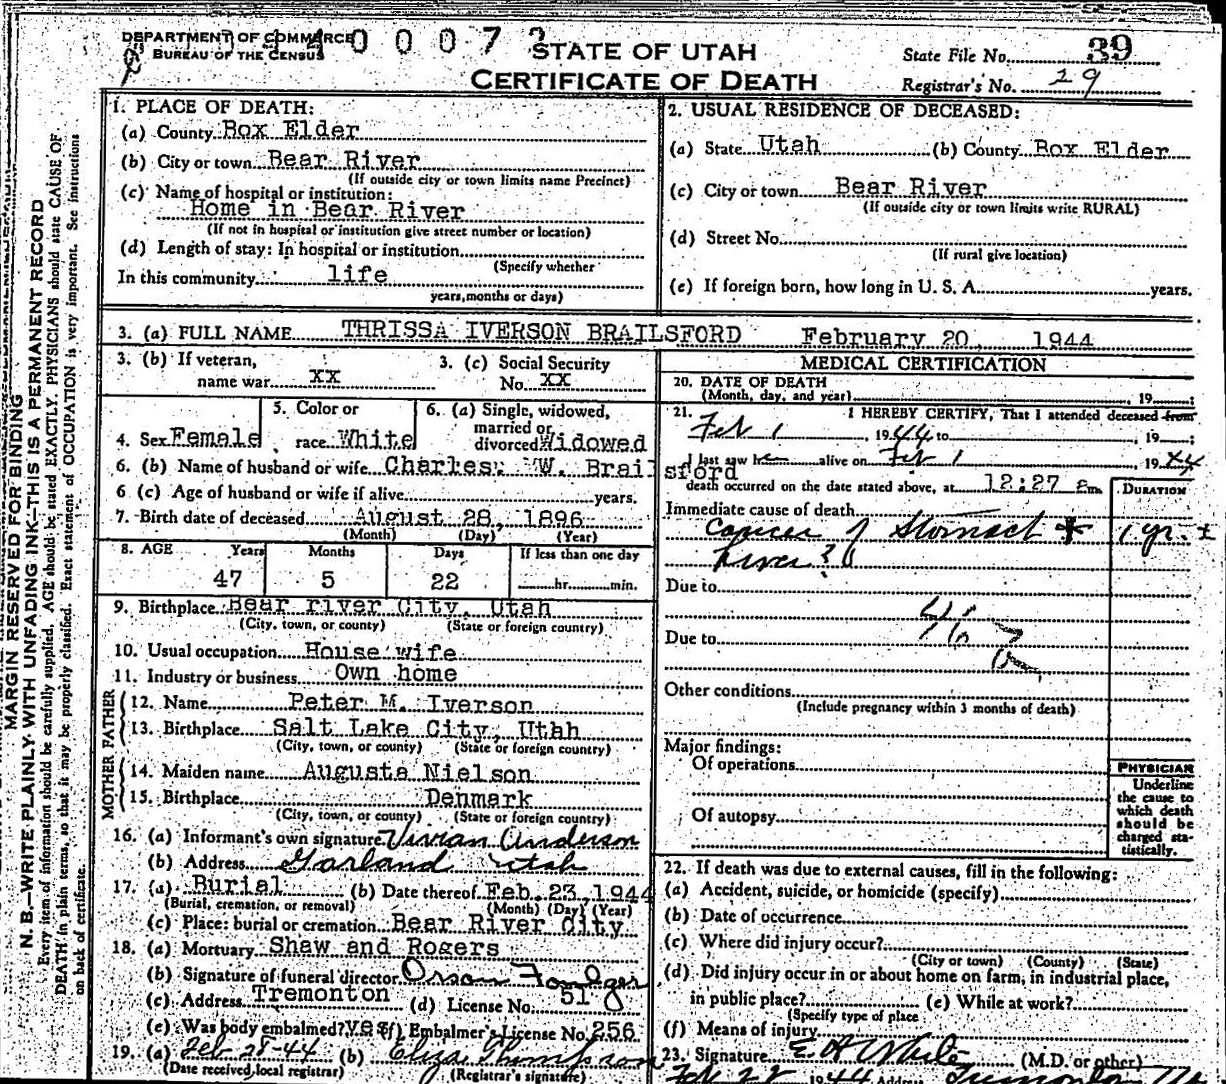 DEPARTMENT OF COMMERCE
BUREAU OF THE CENSUS
STATE OF UTAH
CERTIFICATE OF DEATH
State File No. 39
Registrar's No. 29
MARGIN RESERVED FOR BINDING
N. B.—WRITE PLAINLY WITH UNFADING INK—THIS IS A PERMANENT RECORD
Every item of information should be carefully supplied. AGE should be stated EXACTLY. PHYSICIANS should state CAUSE OF
DEATH in plain terms, so that it may be properly classified. Exact statement of OCCUPATION is very important. See instructions
on back of certificate.
1. PLACE OF DEATH:
(a) County Box Elder
(b) City or town Bear River
(If outside city or town limits name Precinct)
(c) Name of hospital or institution:
Home in Bear River
(If not in hospital or institution give street number or location)
(d) Length of stay: In hospital or institution
(Specify whether
In this community life
years, months or days)
2. USUAL RESIDENCE OF DECEASED:
(a) State Utah (b) County Box Elder
(c) City or town Bear River
(If outside city or town limits write RURAL)
(d) Street No.
(If rural give location)
(e) If foreign born, how long in U. S. A. years.
3. (a) FULL NAME THRISSA IVERSON BRAILSFORD February 20, 1944
3. (b) If veteran,
name war xx
3. (c) Social Security
No. xx
4. Sex Female
5. Color or
race White
6. (a) Single, widowed,
married or
divorced Widowed
6. (b) Name of husband or wife Charles W. Brailsford
6 (c) Age of husband or wife if alive years.
7. Birth date of deceased August 28, 1896
(Month) (Day) (Year)
8. AGE Years Months Days If less than one day
47 5 22 hr. min.
9. Birthplace Bear river City, Utah
(City, town, or county) (State or foreign country)
10. Usual occupation House wife
11. Industry or business Own home
FATHER
12. Name Peter M. Iverson
13. Birthplace Salt Lake City, Utah
(City, town, or county) (State or foreign country)
MOTHER
14. Maiden name Auguste Nielson
15. Birthplace Denmark
(City, town, or county) (State or foreign country)
16. (a) Informant's own signature Vivian Anderson
(b) Address Garland Utah
17. (a) Burial (b) Date thereof Feb. 23, 1944
(Burial, cremation, or removal) (Month) (Day) (Year)
(c) Place: burial or cremation Bear River City
18. (a) Mortuary Shaw and Rogers
(b) Signature of funeral director Orson Fondger
(c) Address Tremonton (d) License No. 51
(e) Was body embalmed? yes (f) Embalmer's License No. 256
19. (a) Feb 28-44 (b) Eliza Thompson
(Date received, local registrar) (Registrar's signature)
MEDICAL CERTIFICATION
20. DATE OF DEATH
(Month, day, and year) , 19 ;
21. I HEREBY CERTIFY, That I attended deceased from
Feb 1 , 1944 to , 19 ;
I last saw her alive on Feb 1 , 1944
death occurred on the date stated above, at 12:27 a m.
DURATION
Immediate cause of death
Cancer of Stomach + 1 yr. ±
Liver?
Due to
Due to
Other conditions
(Include pregnancy within 3 months of death)
Major findings:
Of operations
Of autopsy
PHYSICIAN
Underline
the cause to
which death
should be
charged sta-
tistically.
22. If death was due to external causes, fill in the following:
(a) Accident, suicide, or homicide (specify)
(b) Date of occurrence
(c) Where did injury occur?
(City or town) (County) (State)
(d) Did injury occur in or about home on farm, in industrial place,
in public place? (e) While at work?
(Specify type of place
(f) Means of injury
23. Signature E. H. White (M.D. or other)
1944 Address